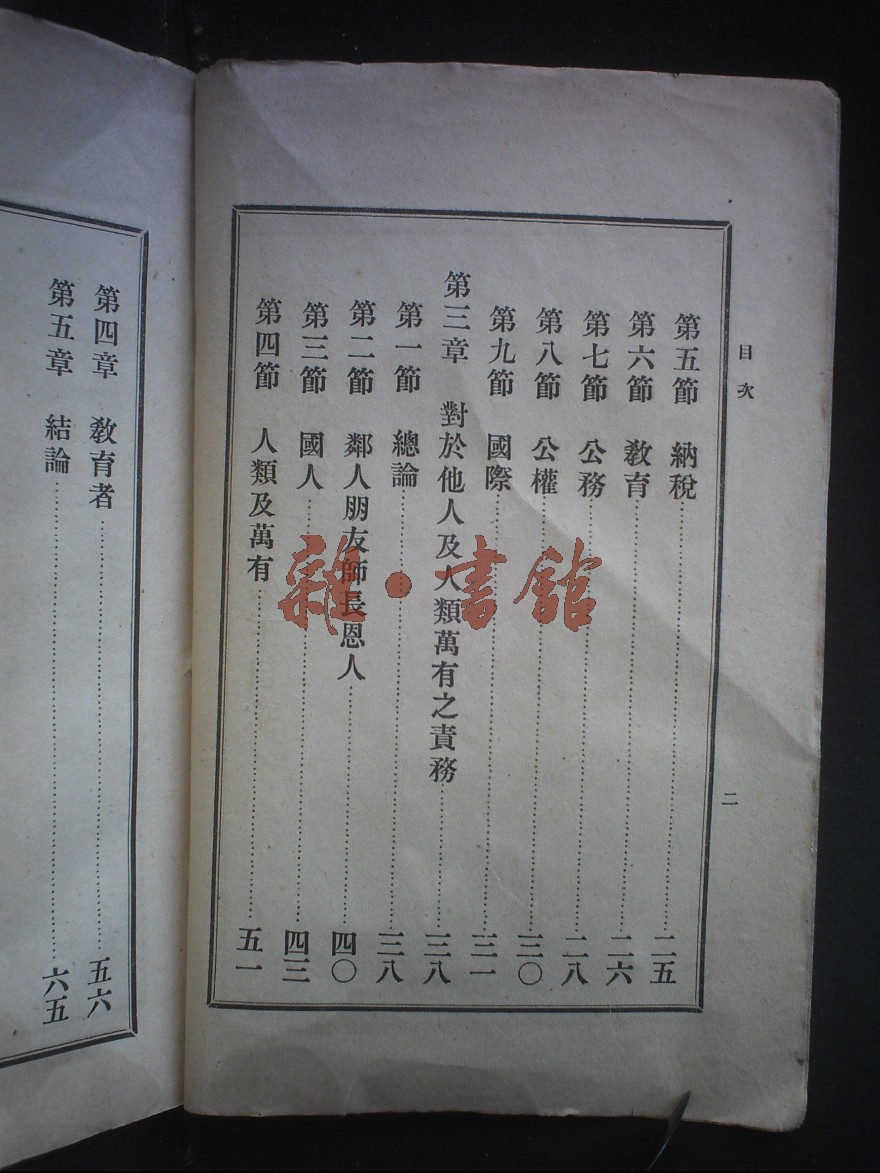 目次
二
第五節　納稅……二五
第六節　敎育……二六
第七節　公務……二八
第八節　公權……三〇
第九節　國際……三一
第三章　對於他人及人類萬有之責務……三八
第一節　總論……三八
第二節　鄰人朋友師長恩人……四〇
第三節　國人……四三
第四節　人類及萬有……五一
第四章　敎育者……五六
第五章　結論……六五
雜·書館